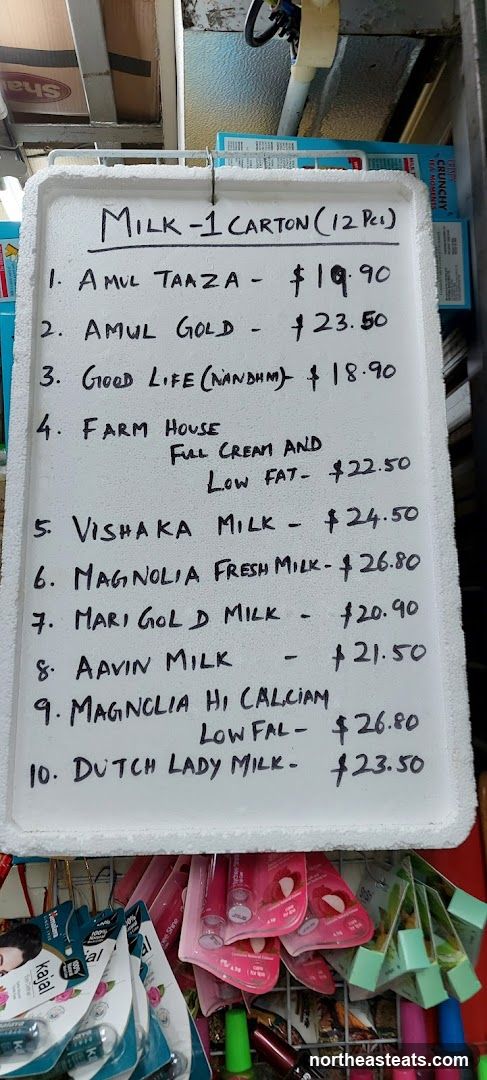 Sha
CRUNCHY
MILK - 1 CARTON (12 Pcs)
1. AMUL TAAZA - $19.90
2. AMUL GOLD - $23.50
3. GOOD LIFE (NANDHM)- $18.90
4. FARM HOUSE
FULL CREAM AND
LOW FAT- $22.50
5. VISHAKA MILK - $24.50
6. MAGNOLIA FRESH MILK- $26.80
7. MARI GOLD MILK - $20.90
8. AAVIN MILK - $21.50
9. MAGNOLIA HI CALCIAM
LOW FAL - $26.80
10. DUTCH LADY MILK- $23.50
kajal
northeasteats.com